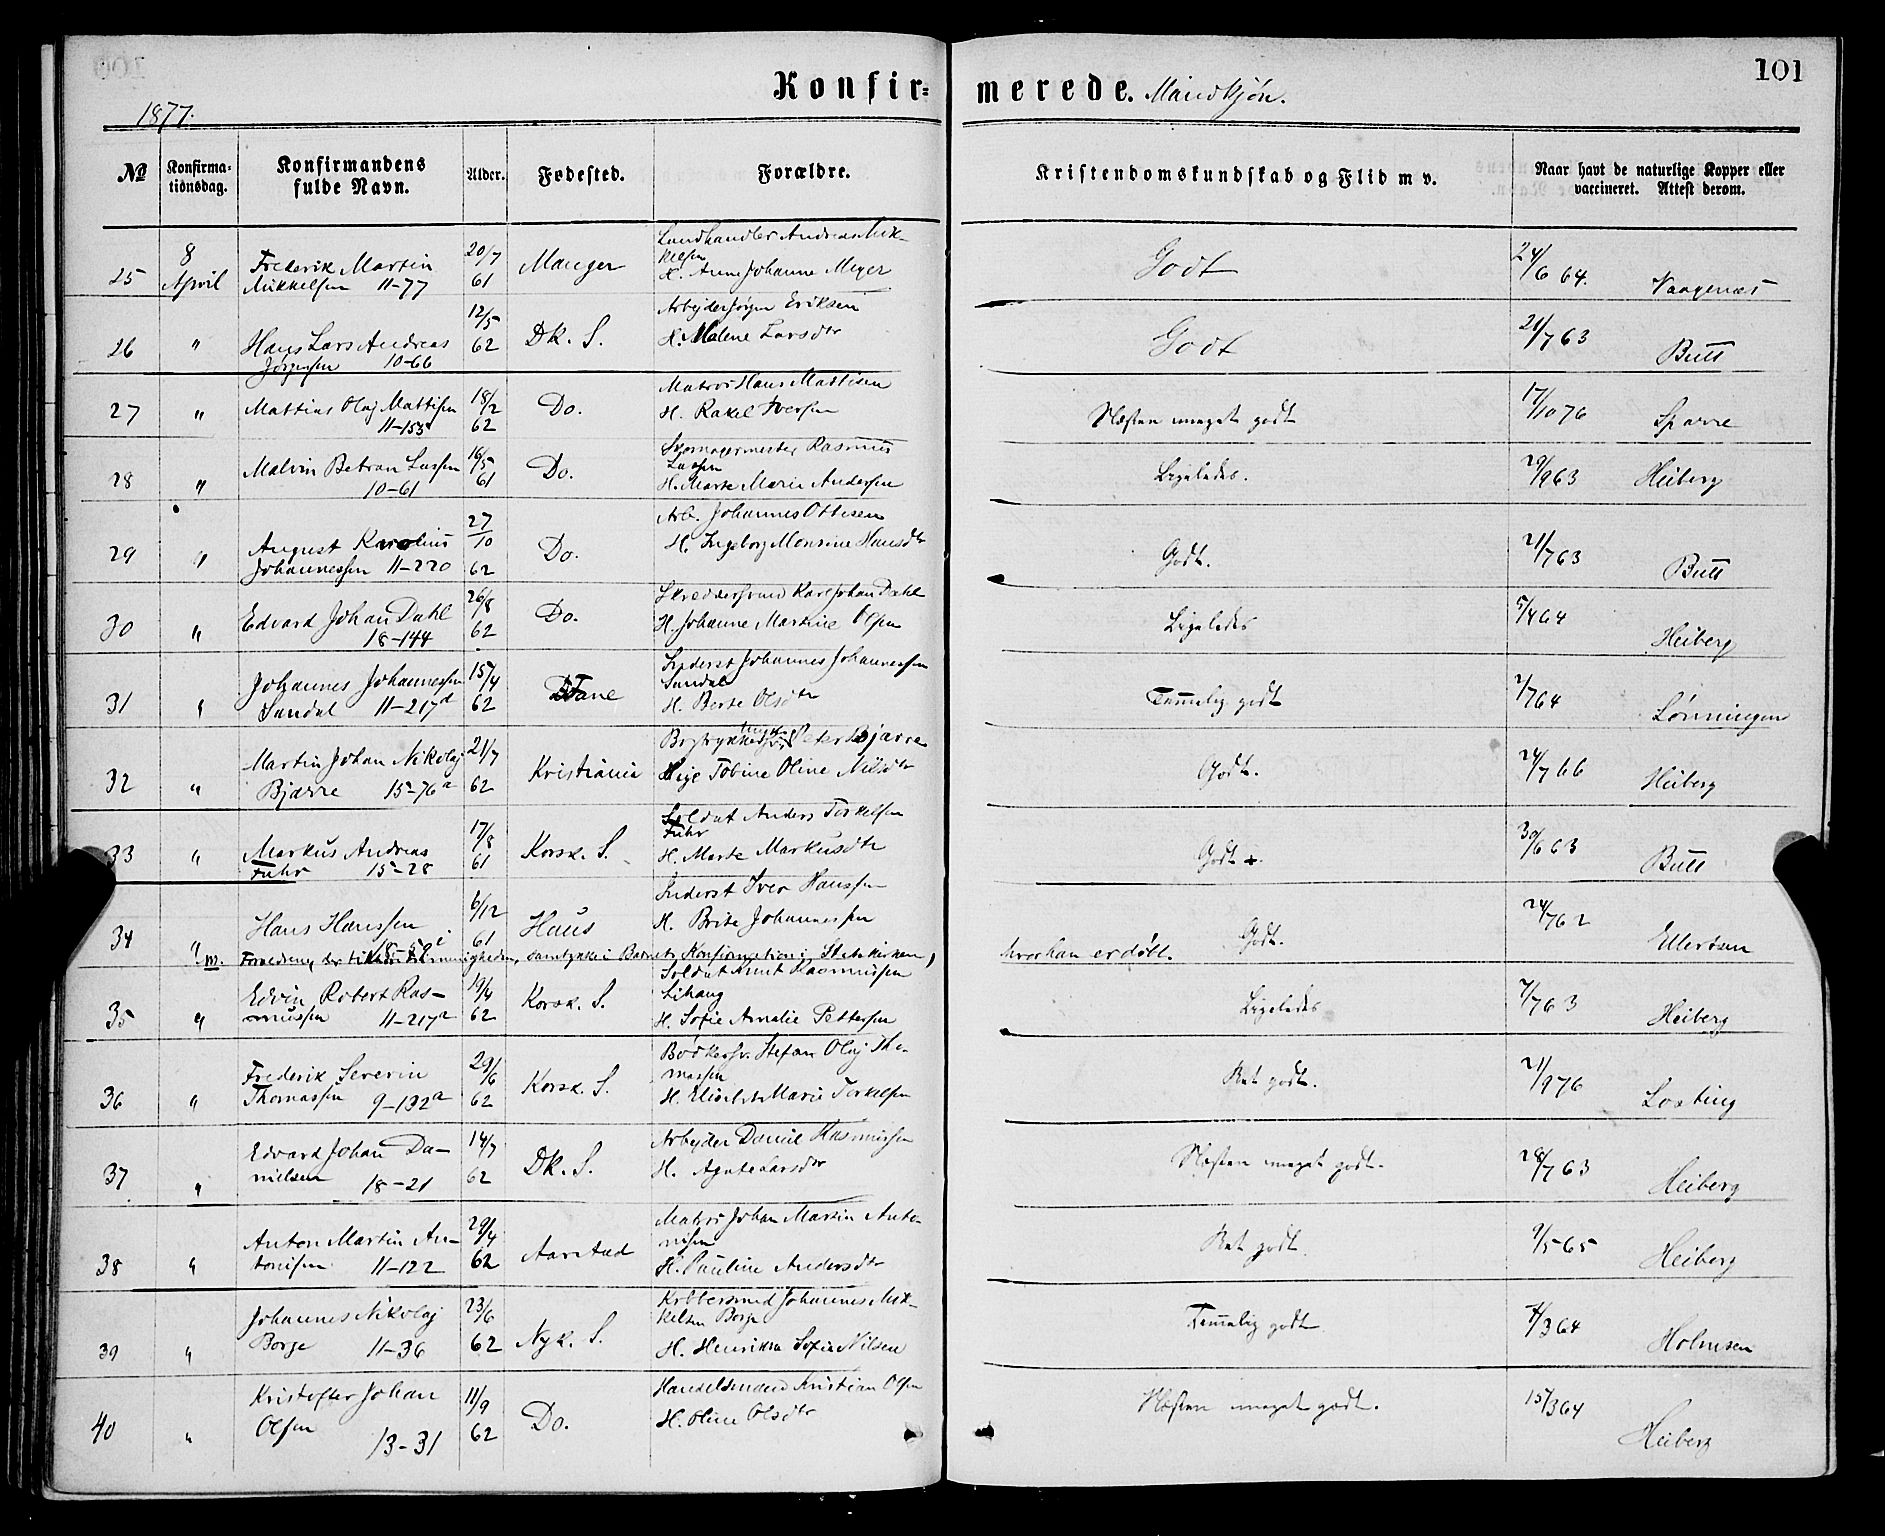 101
Konfir= merede. Mandkjøn.
1877.
№ Konfirma= tidnsdag. Konfirmandens fulde Navn. Alder. Fødested. Forældre. Kristendomskundskab og Flid m v. Naar havt de naturlige Kopper eller vaccineret. Attest derom.
8 20/7 Landhandler Andreas Mik-
25 April Frederik Martin Manger kelsen Godt 24/6 64.
Mikkelsen 11-77 61 H. Anne Johanne Meyer Vaagenæs
12/5 Arbejder Jørgen Eriksen
26 " Hans Lars Andreas 62 Dk. S. H. Malene Larsdtr Godt 21/7 63 Bull
Jørgensen 10-66
27 " Mattias Olaj Mattisen 18/2 Do. Matros Hans Mattisen Næsten meget godt 17/10 76 Sparre
11-153 62 H. Rakel Iversen
28 " Malvin Betran Lassen 16/5 Do. Skomagermester Rasmus Ligeledes. 29/9 63 Heiberg
10-61 61 Lassen
H. Marte Marie Andersen
27/10 Arb. Johannes Ottesen
29 " August Karolius Do. H. Ingeborg Monsine Hansdtr Godt. 21/7 63 Bull
Johannessen 11-220 62
30 " Edvard Johan Dahl 26/8 Do. Skreddersvend Karl Johan Dahl Ligeledes 5/4 64 Heiberg
18-144 62 H. Johanne Martine Olsen
31 " Johannes Johannessen 15/4 Fane Inderst Johannes Johannessen Temmelig godt 7/7 64 Lønningen
Sandal 11-217d 62 Sandal
H. Berte Olsdtr
32 " Martin Johan Nikolaj 21/7 Kristiania Bogtrykker Peter Bjarre Godt. 24/7 66 Heiberg
Bjarre 15-76a 62 Pige Tobine Oline Nilsdtr
33 " Markus Andreas 17/8 Korsk. S. Soldat Anders Torkelsen Godt 30/6 63 Bull
Fuhr 15-28 61 Fuhr
H. Marte Markusdtr
34 " Hans Hanssen 6/12 Haus Inderst Iver Hanssen Godt. 24/7 62 Ellertsen
61 H. Brite Johannessen
samtykke i Barnets Konfirmation i Statskirken, hvor han er døbt.
35 " Edvin Robert Ras- 19/4 Korsk. S. Soldat Knut Rasmussen Ligeledes 7/7 63 Heiberg
mussen 11-217a 62 Lihaug
H. Sofie Amalie Pettersen
36 " Frederik Severin 29/6 Korsk. S. Bødkersv. Stefan Olaj Tho- Ret godt. 21/9 76 Losting
Thomassen 9-132a 62 massen
H. Elisabet Marie Torkelsen
37 " Edvard Johan Da- 14/7 Dk. S. Arbejder Daniel Rasmussen Næsten meget godt. 28/7 63 Heiberg
nielsen 18-21 62 H. Agate Larsdtr
38 " Anton Martin An- 29/4 Aarstad Matros Johan Martin Anto- Ret godt. 9/5 65 Heiberg
tonisen 11-122 62 nisen
H. Pauline Andersdtr
39 " Johannes Nikolaj 23/6 Nyk. S. Kobbersmed Johannes Mik- Temmelig godt 4/3 64 Holmsen
Borge 11-36 62 kelsen Borge
H. Henrikke Sofie Nilsen
40 " Kristoffer Johan 11/9 Do. Handelsmand Kristian Olsen Næsten meget godt. 15/3 64 Heiberg
Olsen 13-31 62 H. Oline Olsdtr